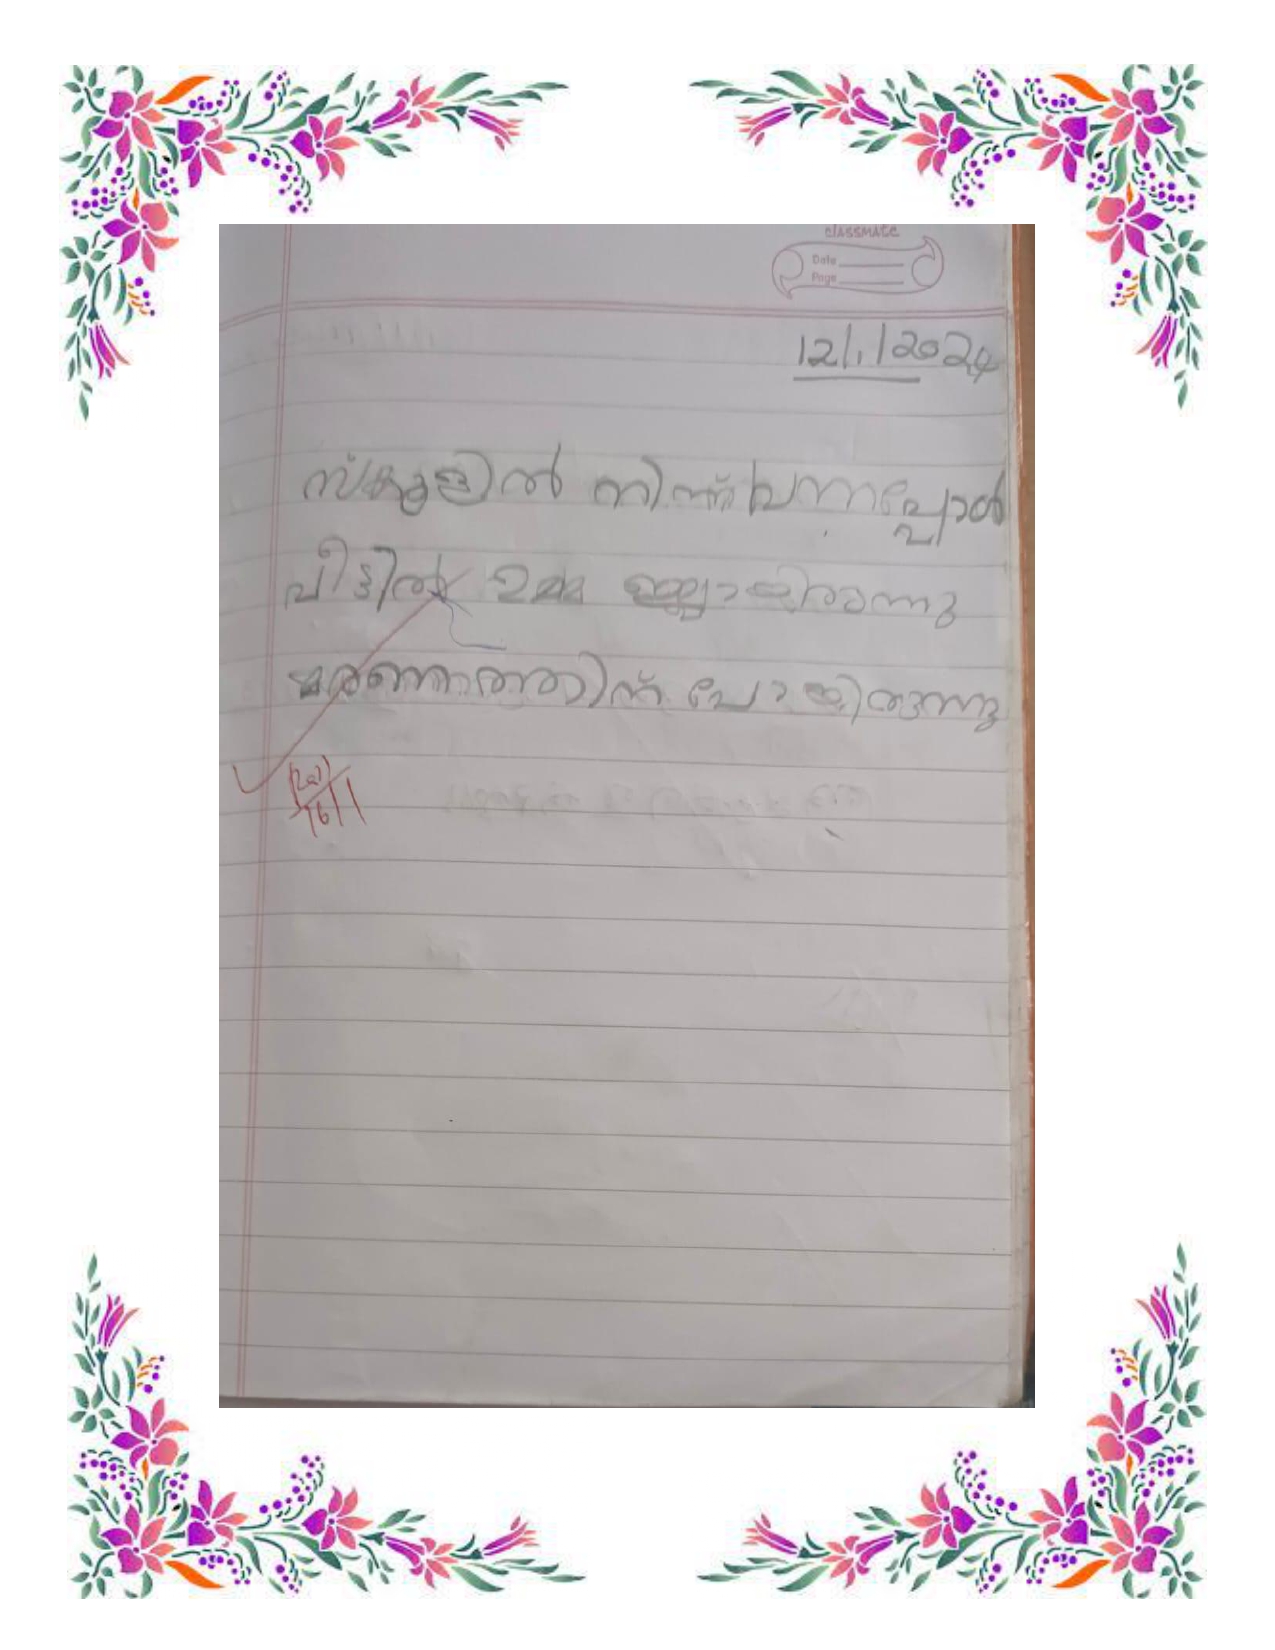 classmate
Date
Page
12/1/2024
സ്കൂളിൽ നിന്ന് വന്നപ്പോൾ
വീട്ടിൽ ഉമ്മ ഇല്ലായിരുന്നു
മരണത്തിന് പോയിരുന്നു
16/1